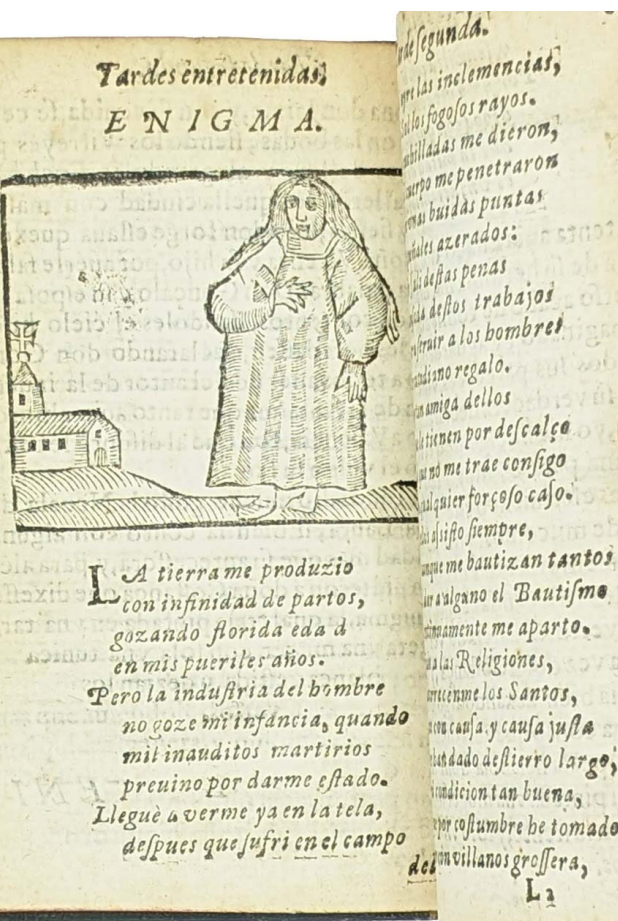 Tardes entretenidas,
ENIGMA.
LA tierra me produzio
con infinidad de partos,
gozando florida edad
en mis pueriles años.
Pero la industria del hombre
no goze mi infancia, quando
mil inauditos martirios
preuino por darme estado.
Lleguè a verme ya en la tela,
despues que sufri en el campo
del
segunda.
las inclemencias,
los fogosos rayos.
me dieron,
me penetraron
buidas puntas
azerados:
destas penas
destos trabajos
a los hombres
regalo.
amiga dellos
tienen por descalço
no me trae consigo
qualquier forçoso caso.
assisto siempre,
me bautizan tantos
alguno el Baptismo
me aparto.
a las Religiones,
los Santos,
con causa, y causa justa
dado destierro largo,
condicion tan buena,
por costumbre he tomado
villanos grossera,
L2